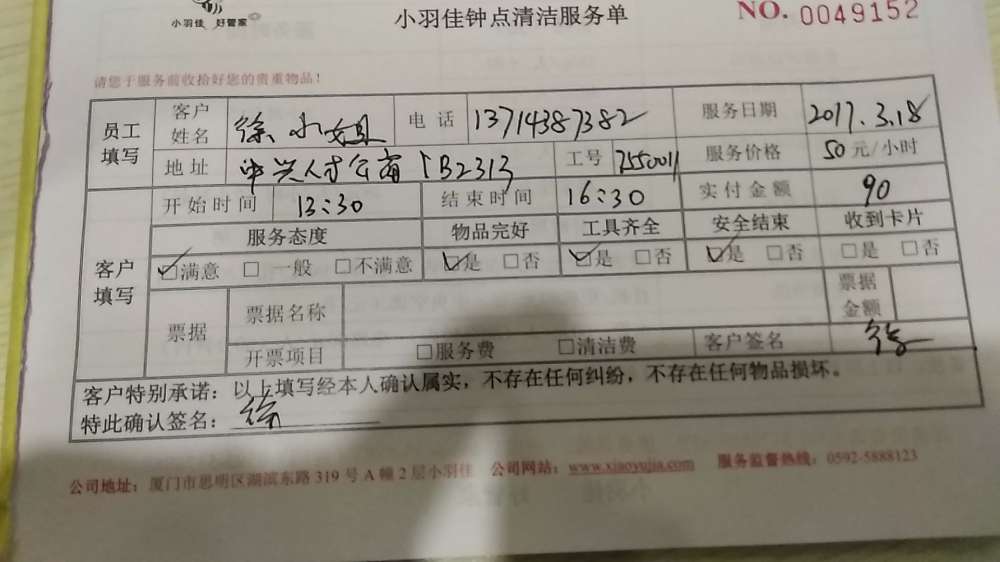 小羽佳 好管家
小羽佳钟点清洁服务单
NO. 0049152
请您于服务前收拾好您的贵重物品！
员工填写 客户姓名 徐小姐 电话 13714387382 服务日期 2017.3.18
地址 中兴人才公寓 1B2313 工号 7550011 服务价格 50元/小时
开始时间 13:30 结束时间 16:30 实付金额 90
客户填写 服务态度 物品完好 工具齐全 安全结束 收到卡片
☑满意 □一般 □不满意 ☑是 □否 ☑是 □否 ☑是 □否 □是 □否
票据 票据名称 票据金额
开票项目 □服务费 □清洁费 客户签名 徐
客户特别承诺：以上填写经本人确认属实，不存在任何纠纷，不存在任何物品损坏。
特此确认签名：徐
公司地址：厦门市思明区湖滨东路319号A幢2层小羽佳 公司网站：www.xiaoyujia.com 服务监督热线：0592-5888123